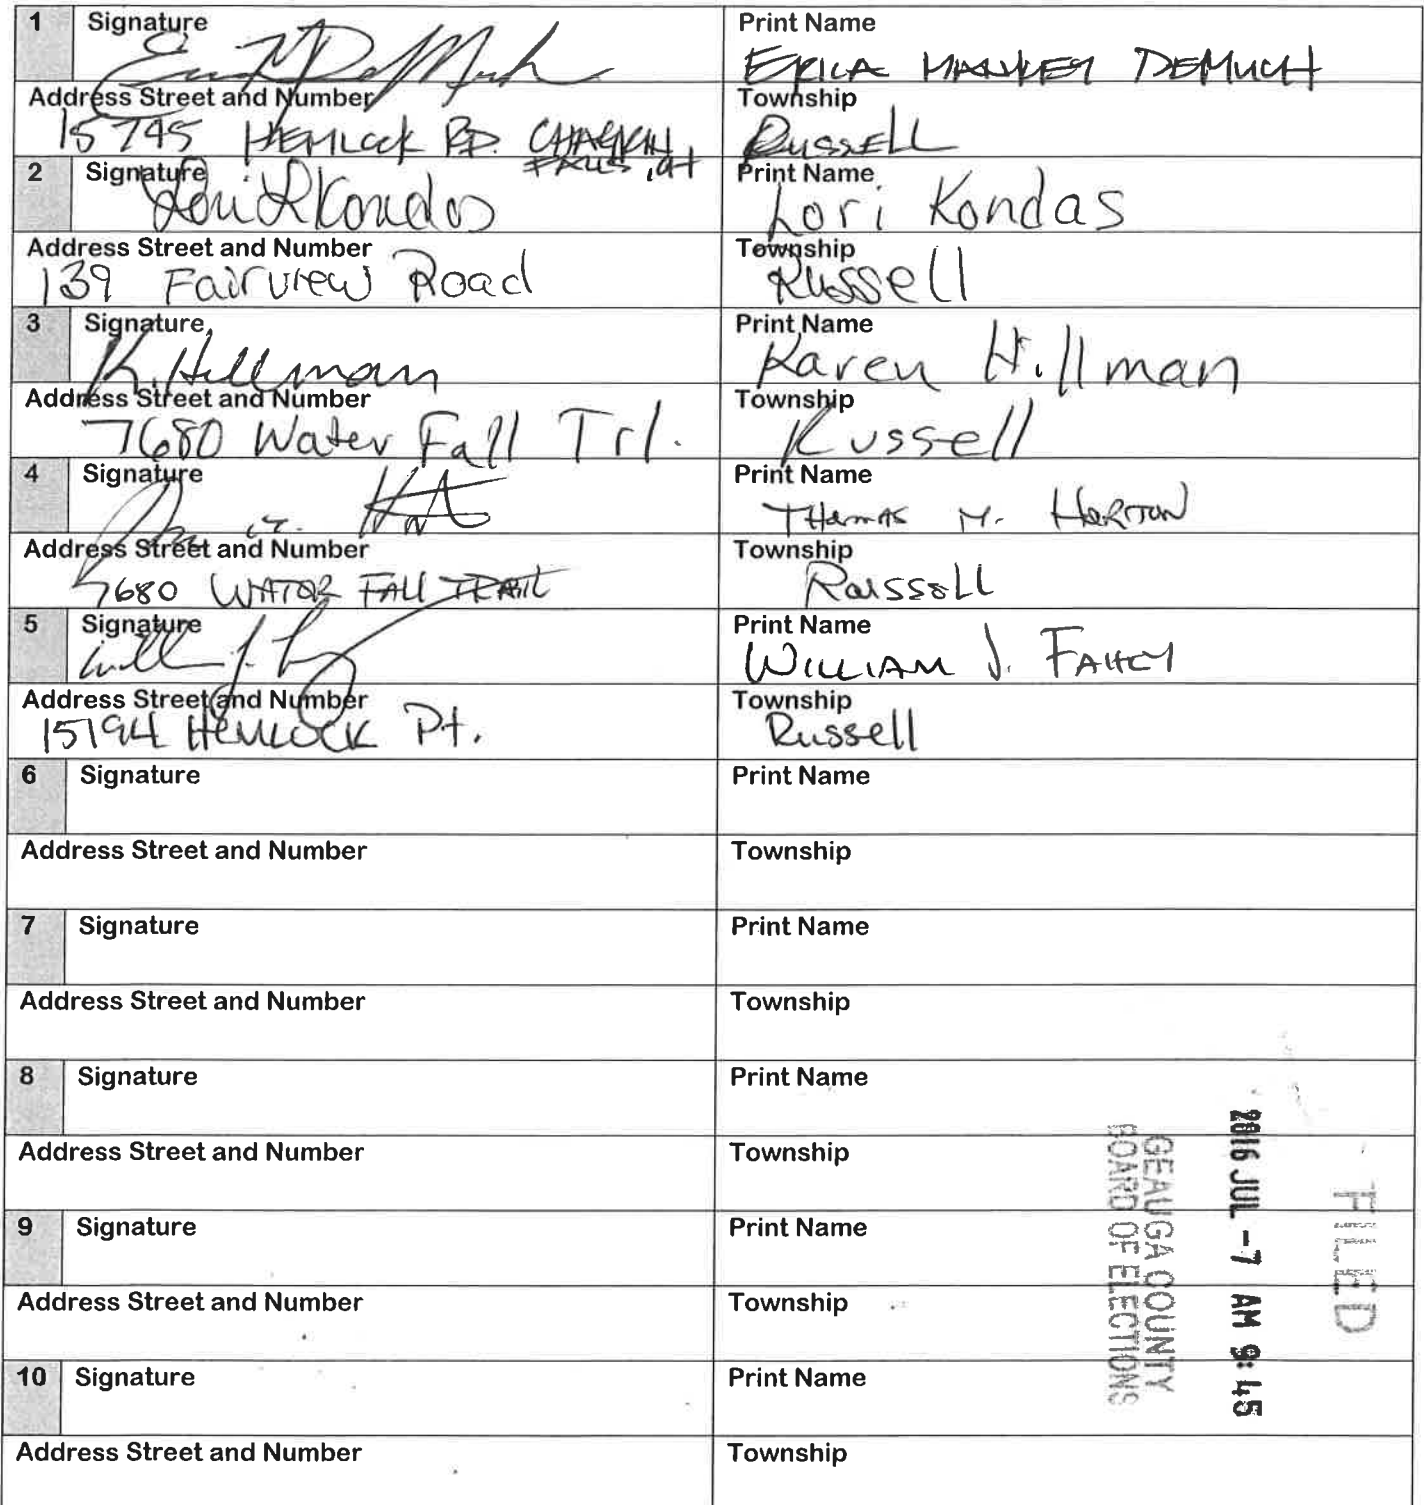 1 Signature Print Name
ERICA DEMUCH
Address Street and Number Township
15745 HEMLOCK RD. CHAGRIN RUSSELL
FALLS, OH
2 Signature Print Name
Lori Kondas Lori Kondas
Address Street and Number Township
139 Fairview Road Russell
3 Signature Print Name
K. Hillman Karen Hillman
Address Street and Number Township
7680 Water Fall Trl. Russell
4 Signature Print Name
THOMAS M. HORTON
Address Street and Number Township
7680 WATER FALL TRAIL Russell
5 Signature Print Name
WILLIAM J. FAHEY
Address Street and Number Township
15194 HEMLOCK Pt. Russell
6 Signature Print Name
Address Street and Number Township
7 Signature Print Name
Address Street and Number Township
8 Signature Print Name
Address Street and Number Township
9 Signature Print Name
Address Street and Number Township
10 Signature Print Name
Address Street and Number Township
FILED
2016 JUL -7 AM 9:45
GEAUGA COUNTY
BOARD OF ELECTIONS